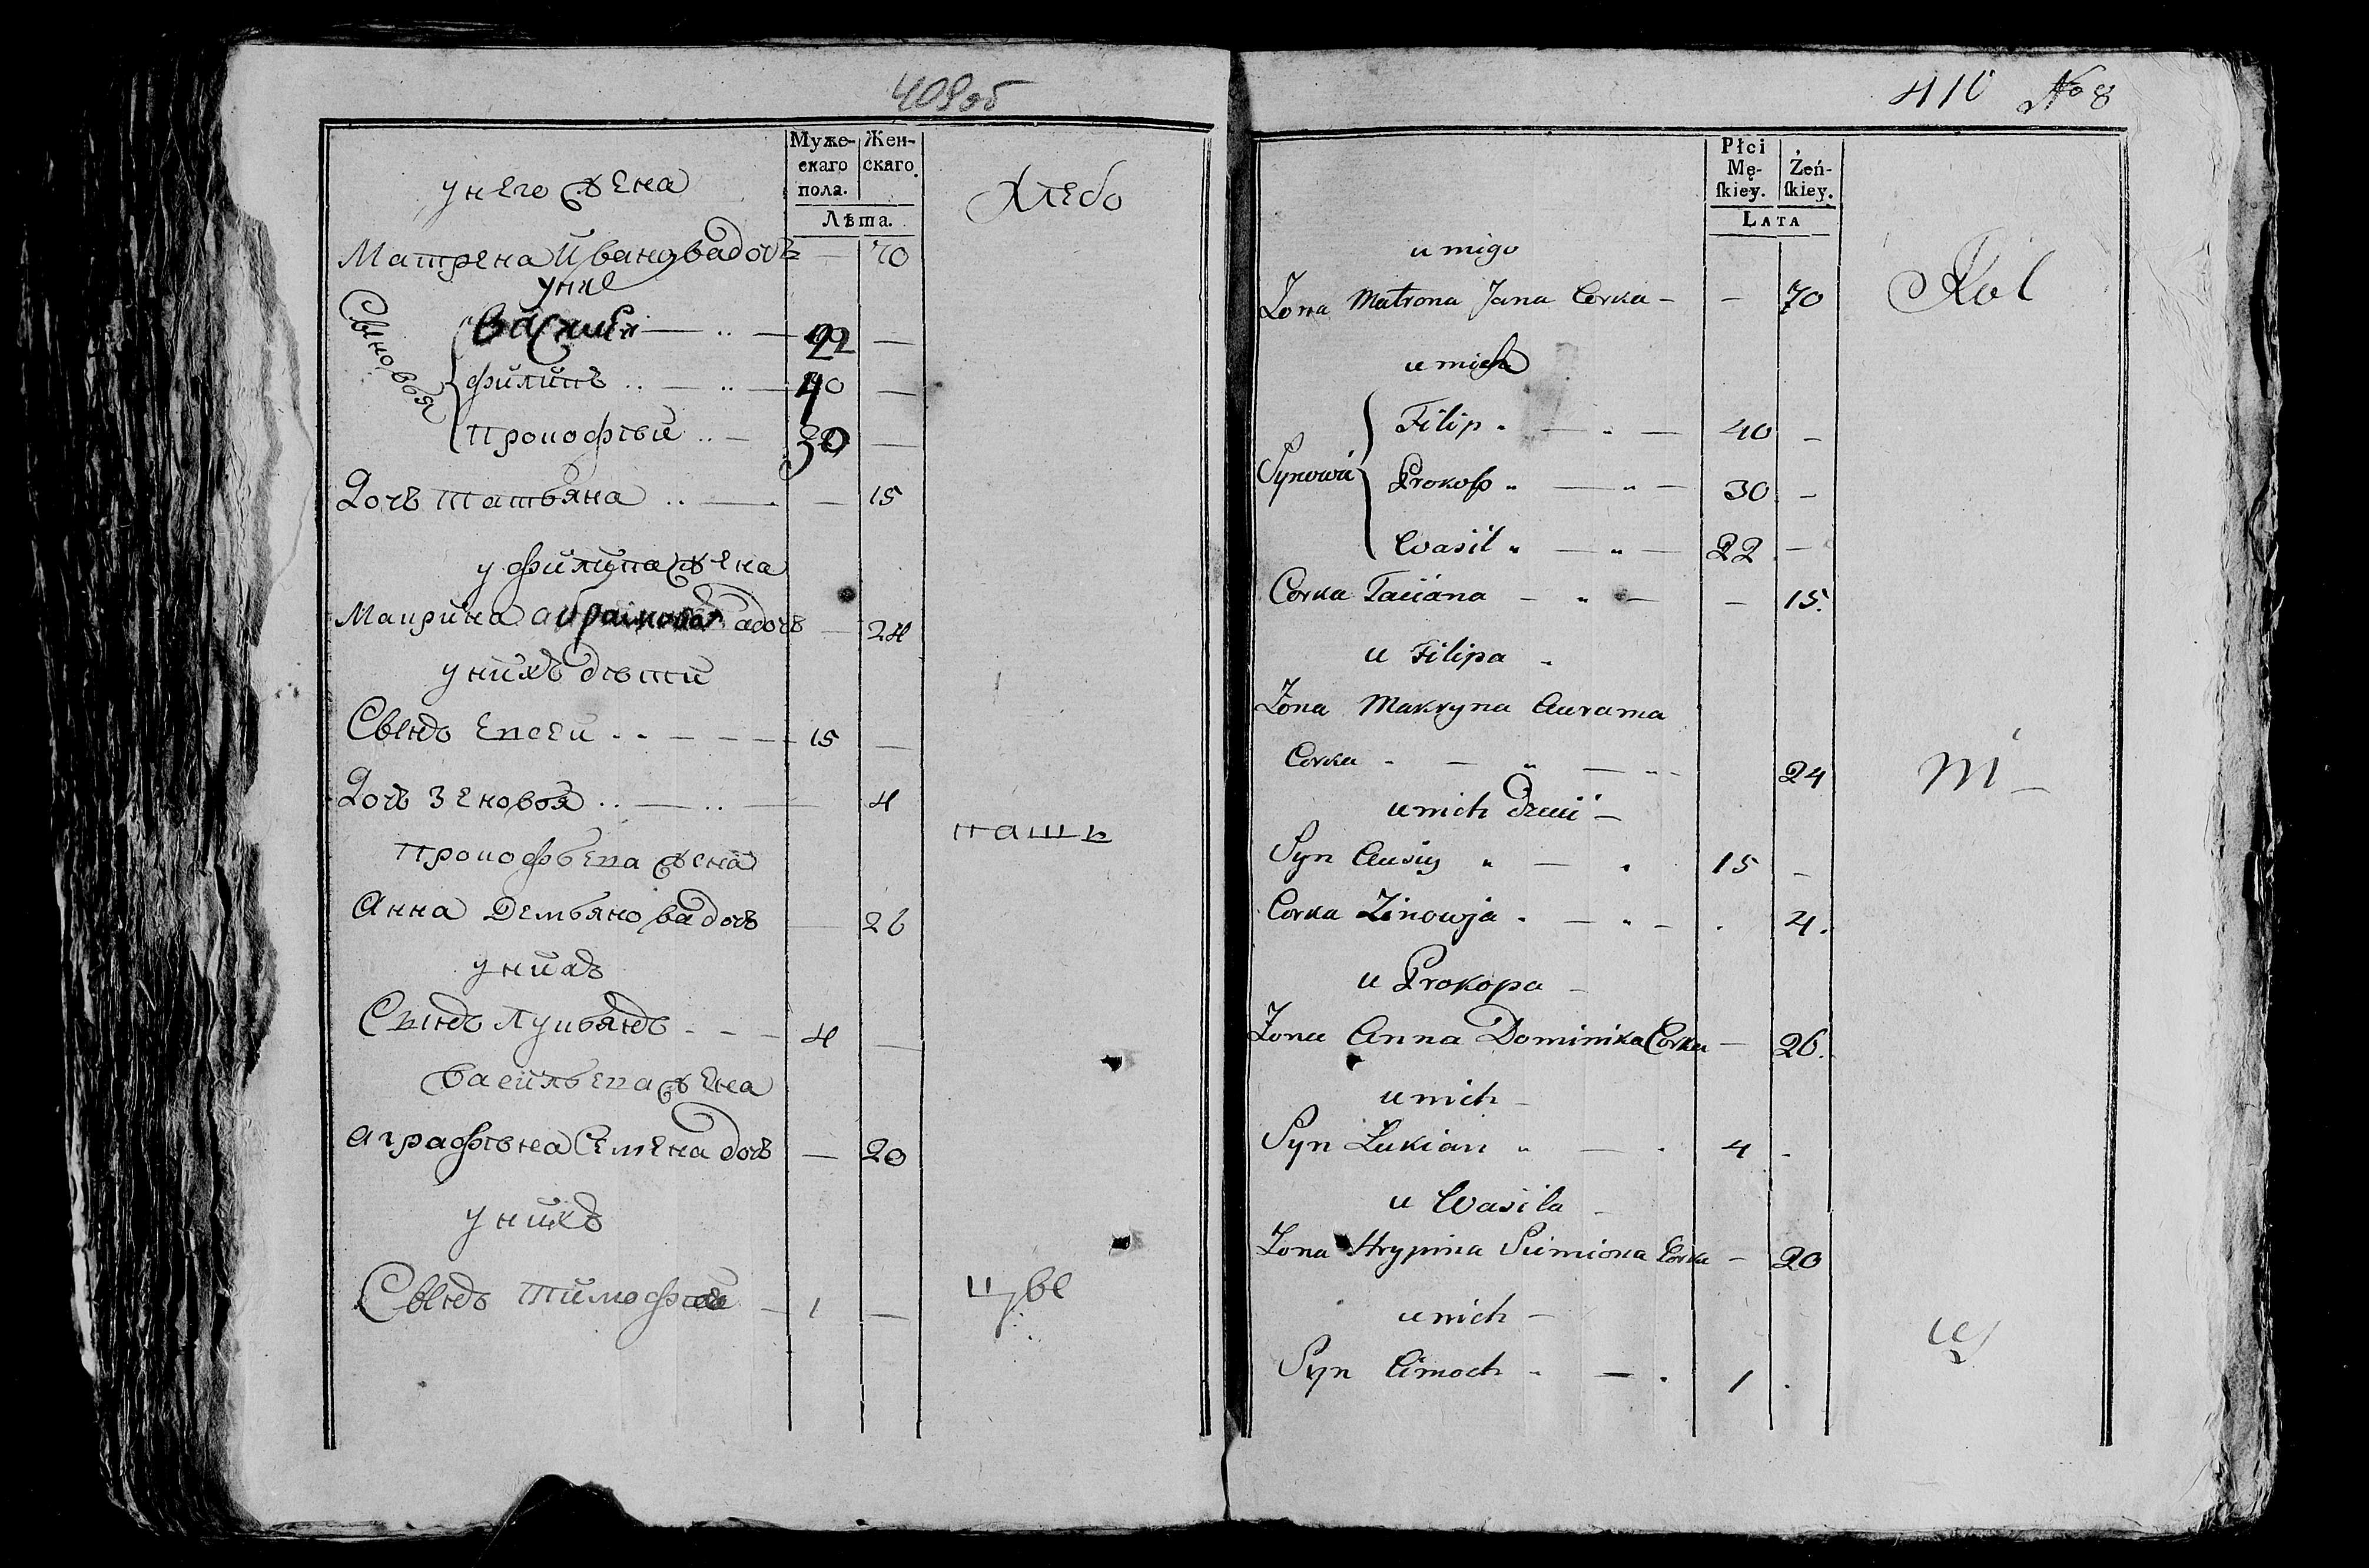 409 об
Муже-
скаго
пола.
Жен-
скаго.
Лѣта.
у него жена
Хлебо
Матрена Иванова дочь — 70
у них
Сыновья
Василий — .. — 22 —
Филипъ .. — .. — 40 —
Прокофѣй .. — 30 —
Дочъ Татьяна .. — . — 15
у Филипа жена
Макрина адочъ — 24
у нихъ дѣти
Сынъ Евсей .. — — — 15 —
Дочъ Зеновья .. — .. — 4
пашь
Прокофьева жена
Анна Демьянова дочъ — 26
у нихъ
Сынъ Лукьянъ - - - 4 —
Васильева жена
Аграфѣна Семена дочъ — 20
у нихъ
Сынъ Тимофей — 1 —
410 No 8
Płci
Mę-
ſkiey.
Żeń-
ſkiey.
LATA
u niego
Rol
Zona Matrona Jana Corka - - 70
u nich
Synowie
Filip . — . — 40 -
Prokop . — . — 30 -
Wasil . — . — 22 —
Corka Taciana — . — - 15.
u Filipa .
Zona Makryna Aurama
Corka - — . — .. - 24
ni —
u nich Dzieci —
Syn Ausiy . — . 15 -
Corka Zinowja . — . - . 4.
u Prokopa -
Zona Anna Dominika Corka — 26.
u nich -
Syn Łukian . — . 4 -
u Wasila -
Zona Hrypina Siemiona Corka — 20
u nich -
Syn Cimoch . — . 1 .